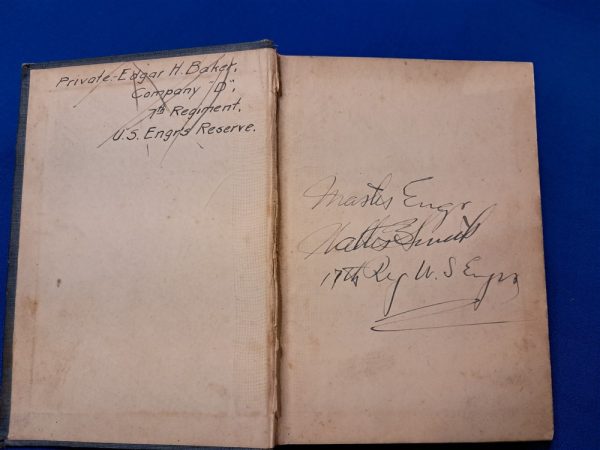 Private-Edgar H. Baker,
Company "D",
7th Regiment,
U.S. Engrs Reserve.
Master Engr
Walter E Smith
17th Reg U.S Engrs